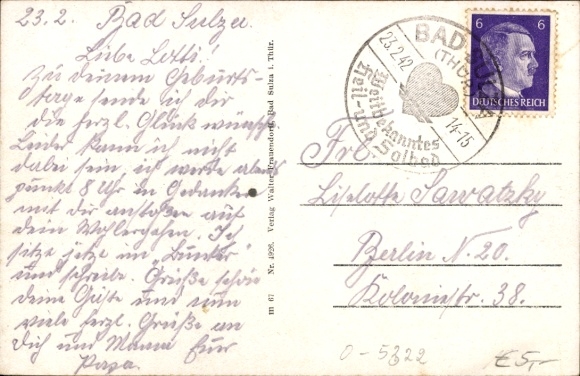 23.2. Bad Sulza
Liebe Lotti!
Zu deinem Geburts-
tage sende ich dir
die herzl. Glückwünsche
Leider kann ich nicht
dabei sein, ich werde aber
punkt 8 Uhr in Gedanken
mit dir anstoßen auf
dein Wohlergehen. Ich
sitze jetzt im
und schreibe. Grüße schön
deine Gäste und nun
viele herzl. Grüße an
Dich und Mama Euer
Papa.
m 67 Nr. 4926. Verlag Walter Frauendorf, Bad Sulza i. Thür.
BAD SULZA
(THÜR)
23.2.42
14-15
Weltbekanntes
Heil- und Solbad
6 6
DEUTSCHES REICH
Frl.
Liselotte Sawatzky
Berlin N. 20.
Koloniestr. 38.
0-5322
€5,-